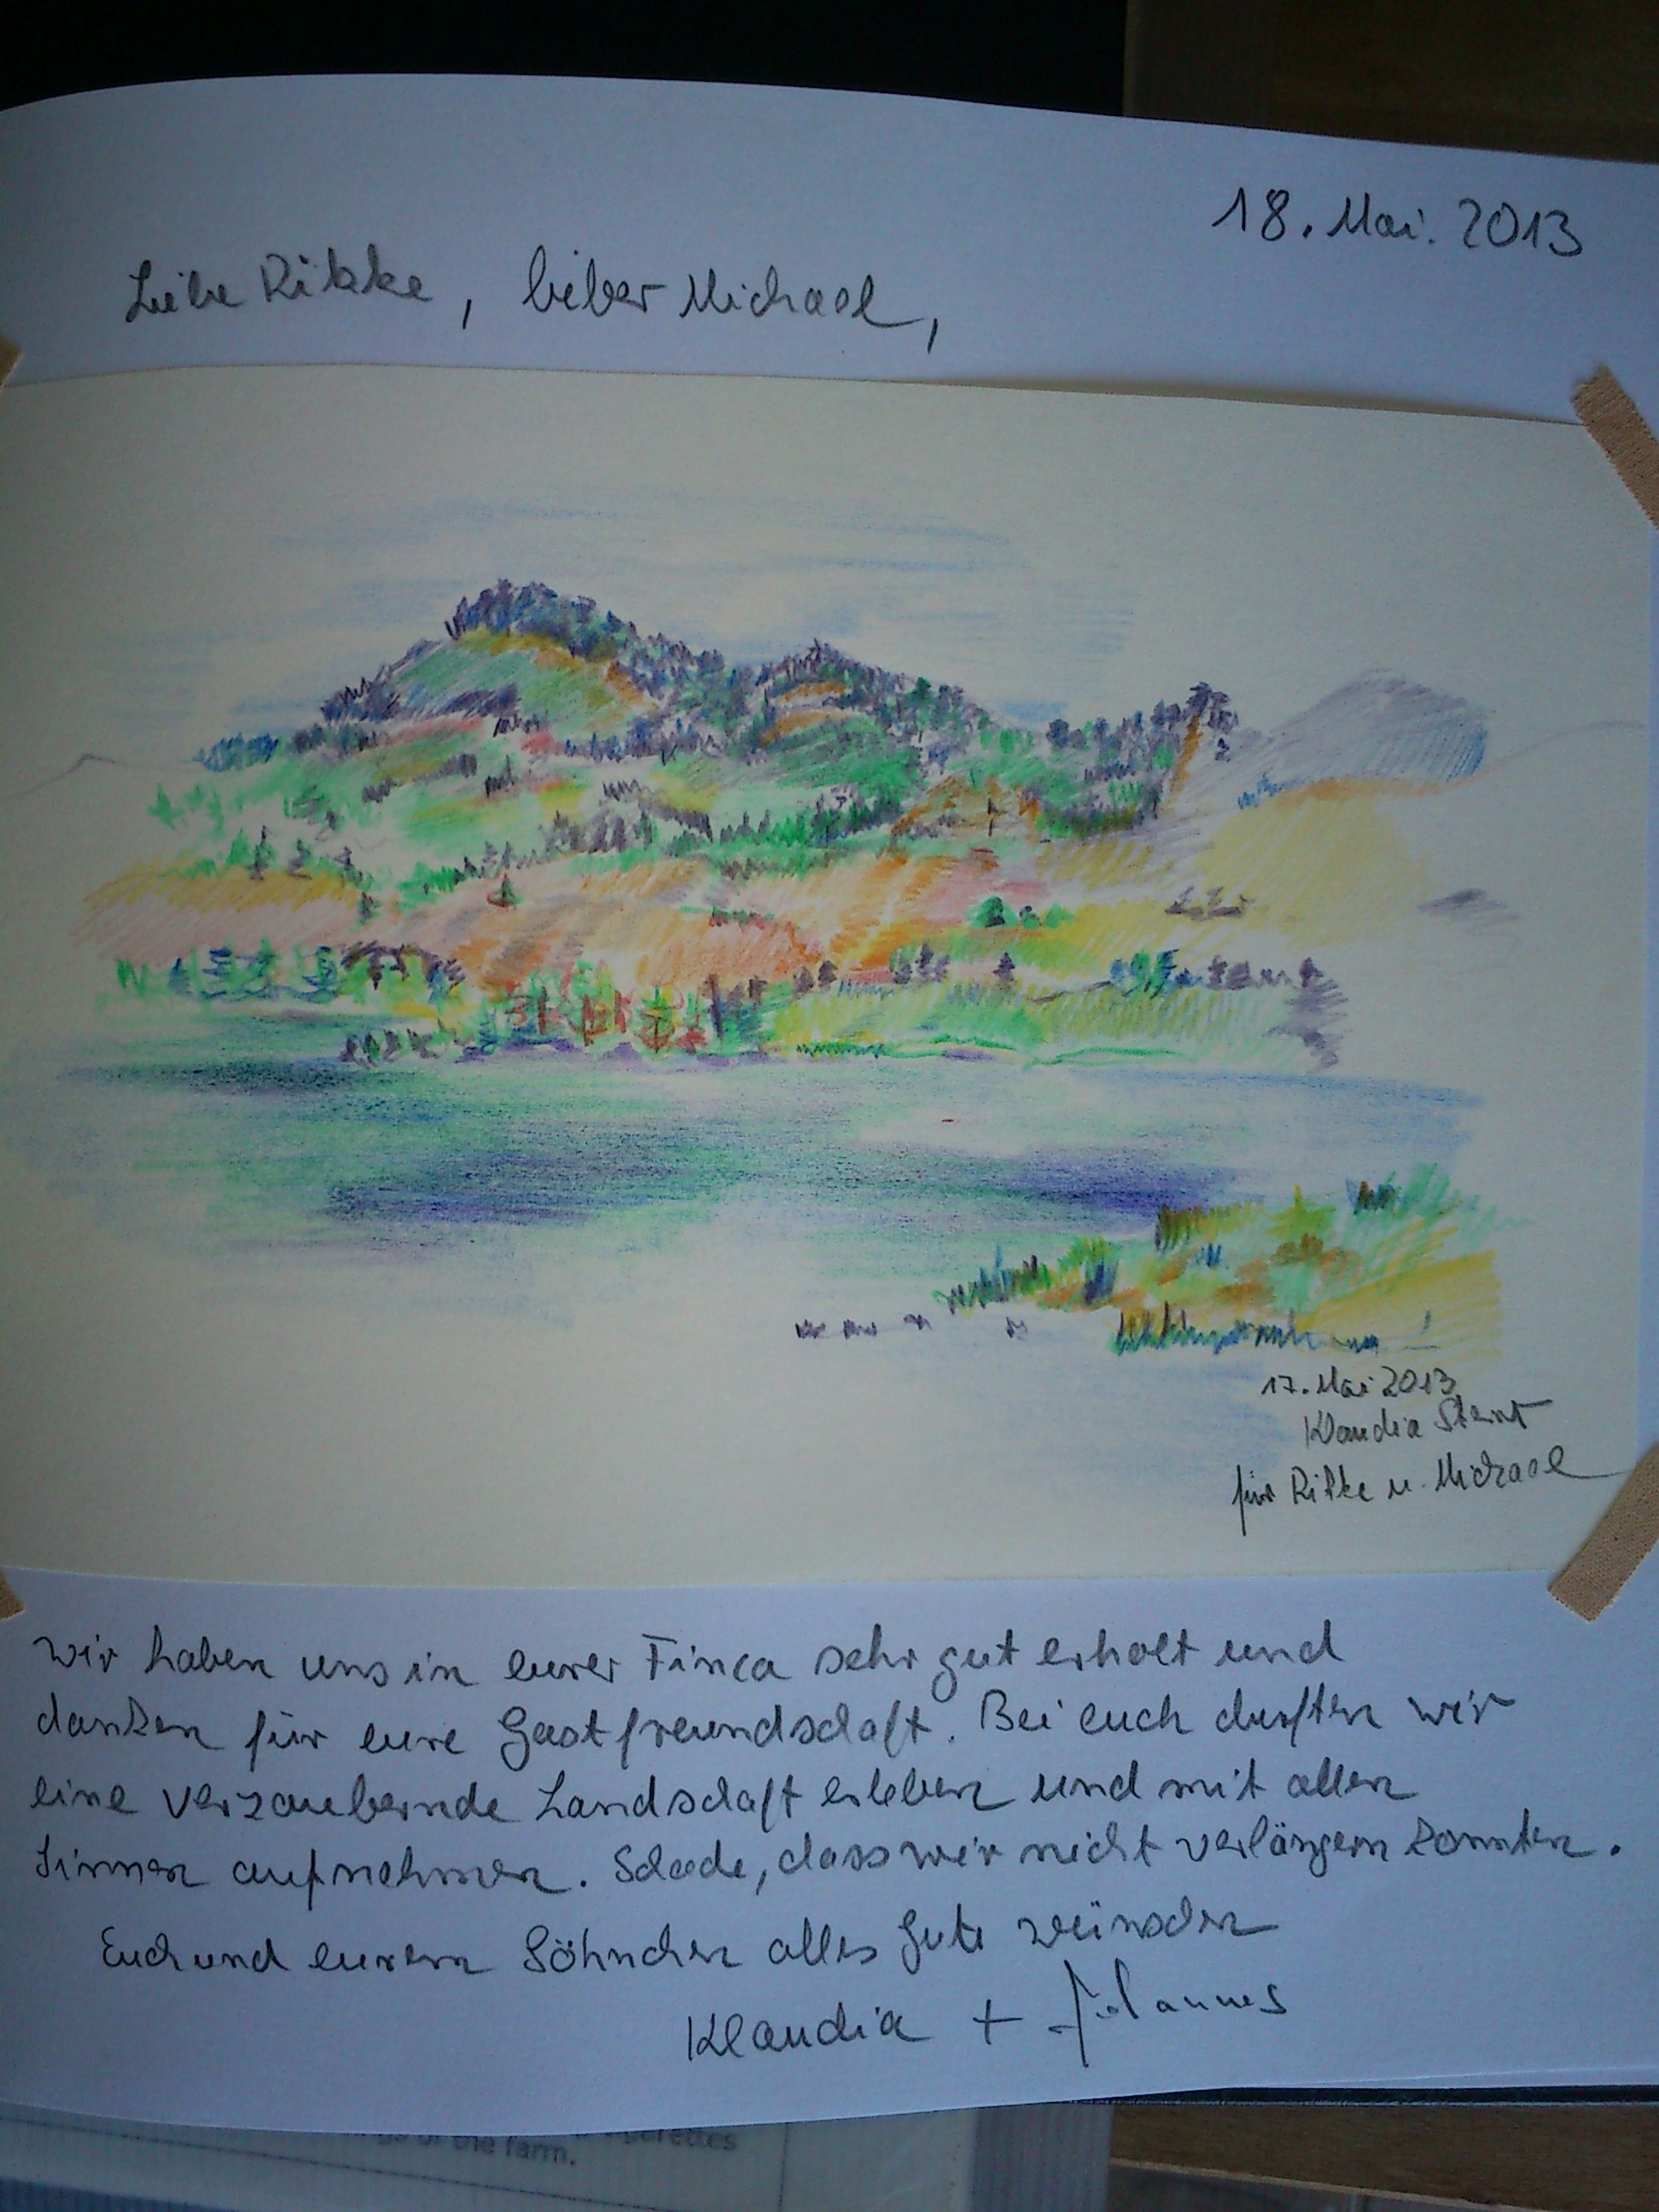 18. Mai. 2013
Liebe Rikke, lieber Michael,
17. Mai 2013
Klaudia
für Rikke u. Michael
Wir haben uns in eurer Finca sehr gut erholt und
danken für eure Gastfreundschaft. Bei euch durften wir
eine verzaubernde Landschaft erleben und mit allen
Sinnen aufnehmen. Schade, dass wir nicht verlängern konnten.
Euch und eurem Söhnchen alles Gute wünschen
Klaudia + Johannes
of the farm.